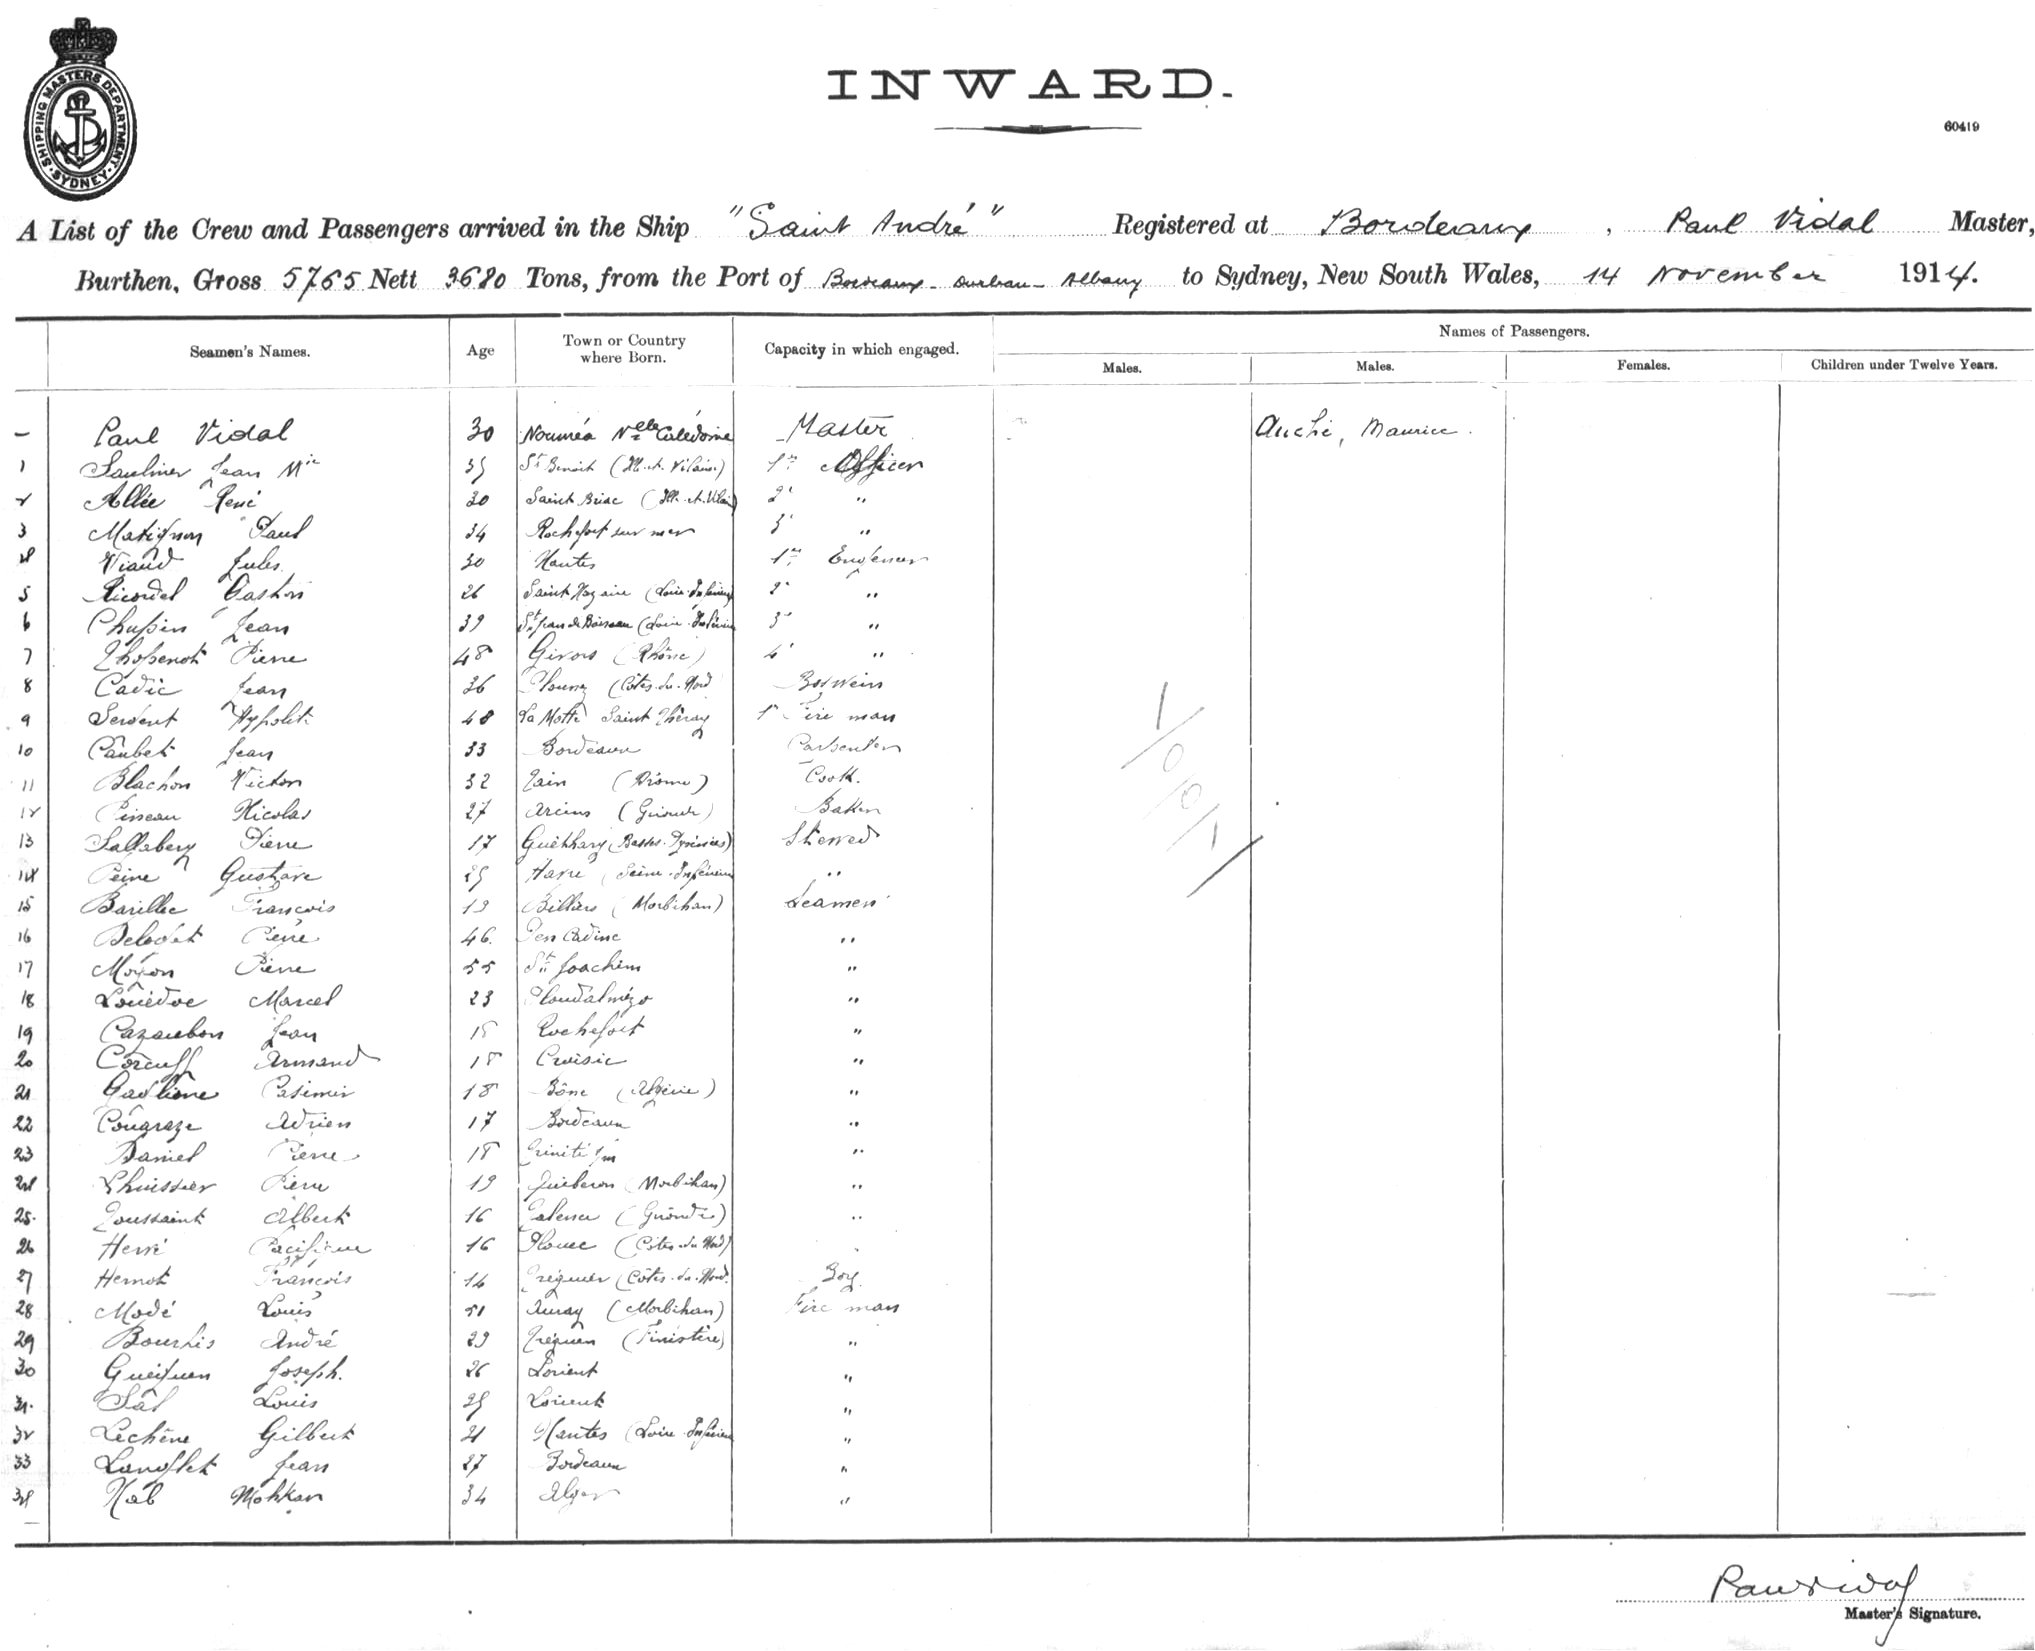 SHIPPING MASTERS DEPARTMENT
SYDNEY
INWARD.
60419
A List of the Crew and Passengers arrived in the Ship "Saint André" Registered at Bordeaux, Paul Vidal Master,
Burthen, Gross 5765 Nett 3680 Tons, from the Port of Bordeaux - Durban - Albany to Sydney, New South Wales, 14 November 1914.
Seamen's Names. Age Town or Country where Born. Capacity in which engaged. Names of Passengers.
Males. Males. Females. Children under Twelve Years.
— Paul Vidal 30 Nouméa Nlle Calédonie Master Auché, Maurice.
1 Saulnier Jean Mie 35 St Benoit (Ill.et.Vilaine) 1er Officer
2 Allée René 30 Saint Briac (Ill.et.Vilain) 2e "
3 Matignon Paul 34 Rochefort sur mer 3e "
4 Viaud Jules 30 Nantes 1er Engeneer
5 Ricordel Gaston 26 Saint Nazaire (Loire Inférieure) 2e "
6 Chupin Jean 39 St Jean de Boiseau (Loire Inférieure 3e "
7 Thopenot Pierre 48 Givors (Rhône) 4e "
8 Cadic Jean 36 (Côtes.du.Nord Boswein
9 Servent Hypolite 48 La Motte Saint Théray 1r Fire man
10 Caubet Jean 33 Bordeaux Carpenter
11 Blachon Victor 32 Tain (Drome) Cook.
12 Pineau Nicolas 27 Arcins (Gironde) Baker
13 Sallabery Pierre 17 Guéthary (Basses.Pyrénées) Stewed
14 Peine Gustave 25 Havre (Seine.Inférieure "
15 Barillec François 19 Billiers (Morbihan) Seamen
16 Belodet Pierre 46. "
17 Moyon Pierre 55 St Joachim "
18 Louédoc Marcel 23 Ploudalmézo "
19 Cazaubon Jean 18 Rochefort "
20 Corcuff Armand 18 Croisic "
21 Casimir 18 Bône (Algérie) "
22 Cougraze Adrien 17 Bordeaux "
23 Daniel Pierre 18 Trinité "
24 Lhuissier Pierre 19 Quiberon (Morbihan) "
25. Toussaint Albert 16 Talence (Gironde) "
26 Hervé Pacifique 16 Plouec (Côtes.du Nord) "
27 Hernot François 14 Tréguier (Côtes.du.Nord. Boy.
28 Modé Louis 51 Auray (Morbihan) Fire man
29 Bourhis André 29 Trégunc (Finistère) "
30 Gueguen Joseph. 26 Lorient "
31. Louis 25 Lorient "
32 Lechêne Gilbert 21 Nantes (Loire Inférieure "
33 Langlet Jean 27 Bordeaux "
34 Mohkar 34 Alger "
Paul Vidal
Master's Signature.